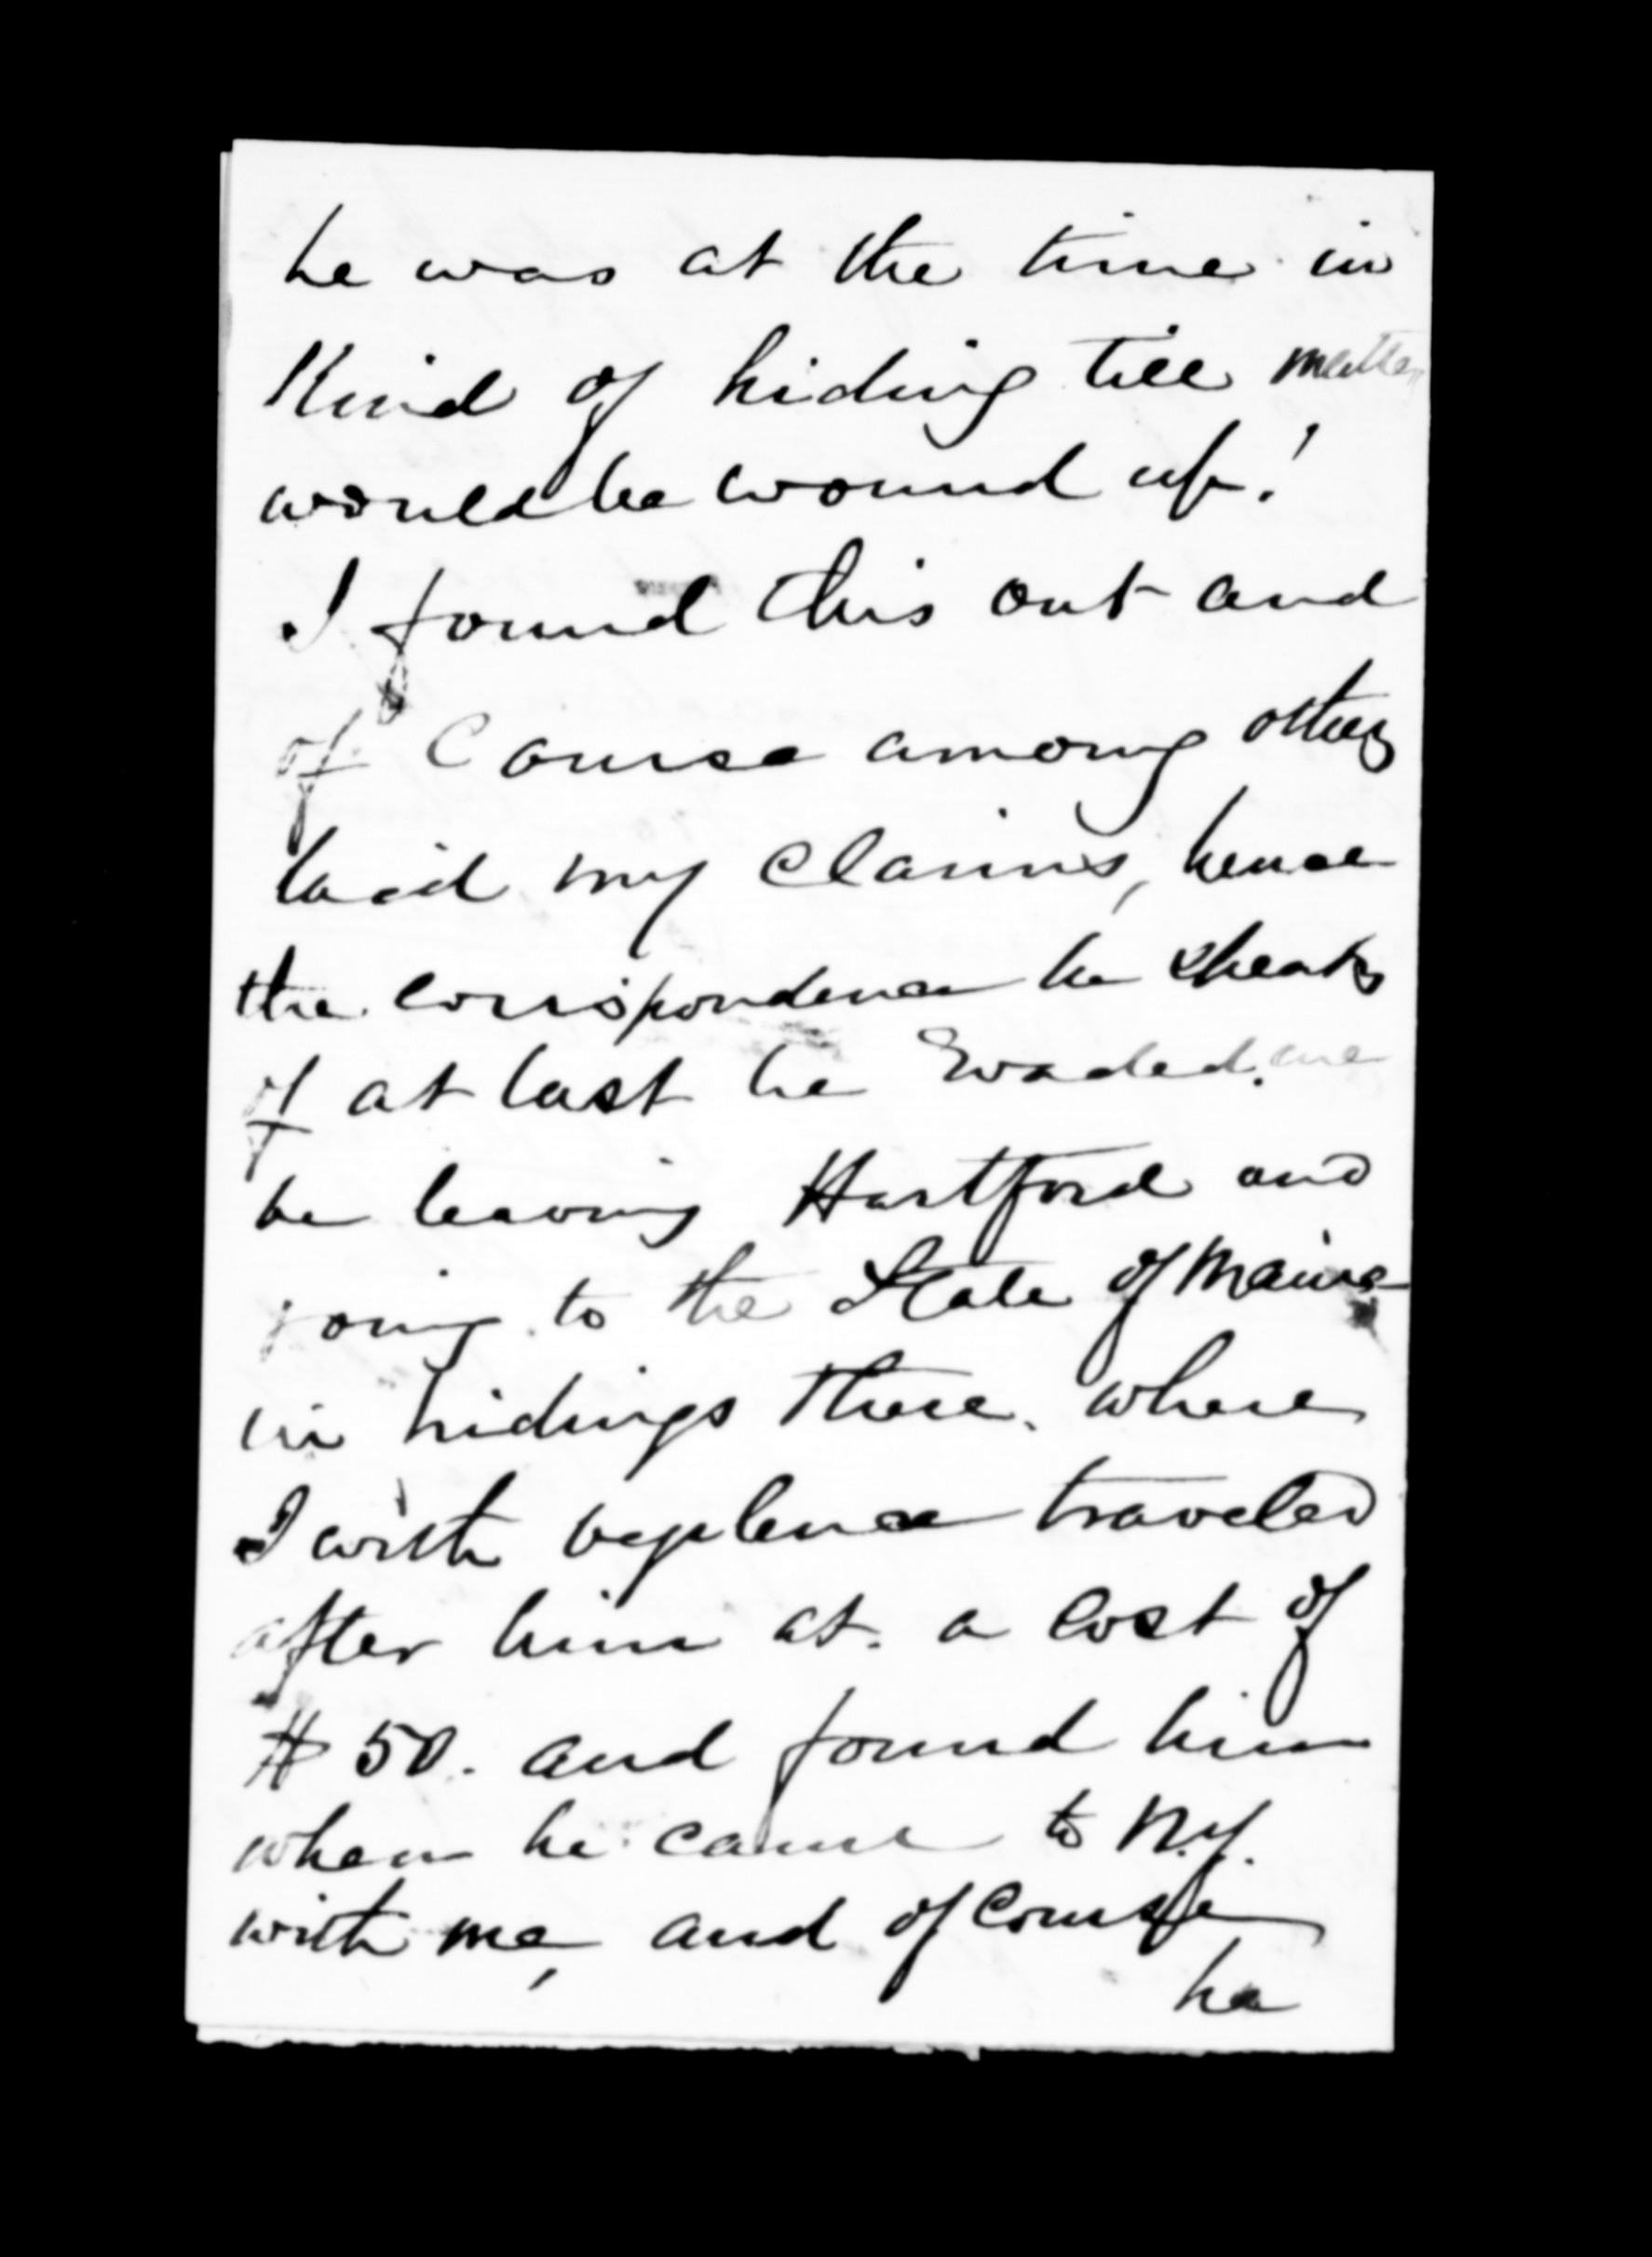 he was at the time in
Kind of hiding till matters
would be wound up!
I found this out and
of Course among others
laid my Claims, hence
the corrispondence he speaks
of at last he Evaded. me
he leaving Hartford and
going to the State of Maine
in hidings there. where
I with vegelence traveled
after him at a Cost of
$50. and found him
when he came to N.Y.
with me, and of Course
he